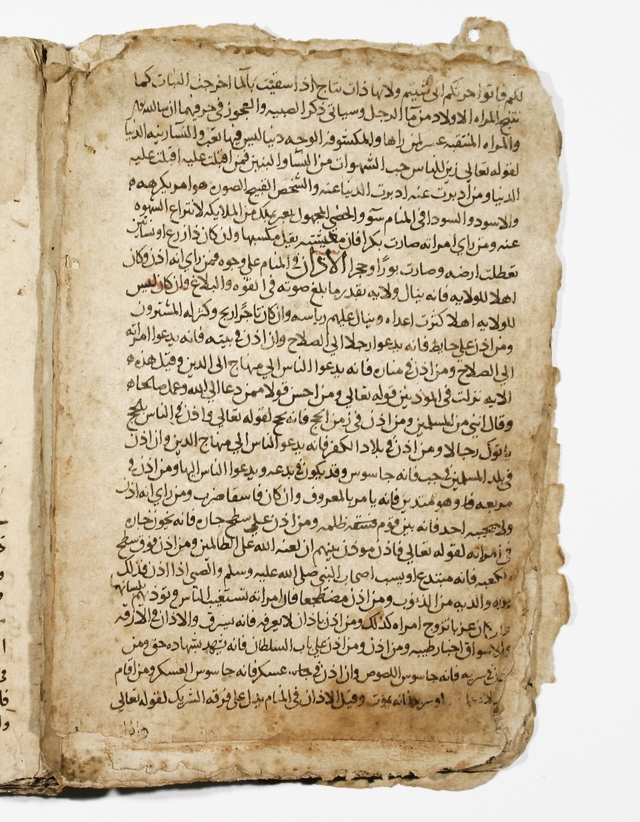 لكم فاتوا حرثكم انى شيتم ولانها ذات نتاج اذا سقيت بالما اخرجت النبات كما
تنتج المراه الاولاد من ما الرجل وسياتي ذكر الصبيه والعجوز في حرفهما ان شا الله
والمراه المنتقبه عسر لمن راها والمكشوفه الوجه دنيا ليس فيها تعب والنسا زينه الدنيا
لقوله تعالى زين للناس حب الشهوات من النسا والبنين فمن اقبلت عليه اقبلت عليه
الدنيا ومن ادبرت عنه ادبرت الدنيا عنه والشخص القبيح الصوره هو امر يكرهه
والاسود والسودا في المنام سو والخصي المجهول يعبر بملك من الملايكه لانتزاع الشهوه
عنه ومن راي امراته صارت بكرا فان معيشته يقل مكسبها وان كان ذا زرع او بساتين
تعطلت ارضه وصارت بورا وحجرا الاذان في المنام على وجوه فمن راي انه اذن وكان
اهلا للولايه فانه ينال ولايه بقدر ما بلغ صوته في القوه والبلاغ وان كان ليس
للولايه اهلا كثرت اعداه وينال عليهم رياسه وان كان تاجرا ربح وكثر له المشترون
ومن اذن على حايط فانه يدعوا رجلا الى الصلاح وان اذن في بيته فانه يدعوا امراته
الى الصلاح ومن اذن في مناره فانه يدعوا الناس الى منهاج الدين وقيل هذه
الايه نزلت في الموذنين قوله تعالى ومن احسن قولا ممن دعا الى الله وعمل صالحا
وقال انني من المسلمين ومن اذن في زمن الحج فانه يحج لقوله تعالى واذن في الناس بالحج
ياتوك رجالا ومن اذن في بلاد الكفر فانه يدعوا الناس الى منهاج الدين وان اذن
في بلد المسلمين في جب فانه جاسوس وقد يكون في بدعه ويدعوا الناس اليها ومن اذن في
فانه يامر بالمعروف وان كان فاسقا ضرب ومن راي انه اذن
ولا يجيبه احد فانه بين قوم ظلمه ومن اذن على سطح جاره فانه يخون جاره
في امراته لقوله تعالى فاذن موذن بينهم ان لعنه الله على الظالمين ومن اذن فوق سطح
الكعبه فانه مبتدع او يسب اصحاب النبي صلى الله عليه وسلم والصبي اذا اذن فذلك
والديه من الذنوب ومن اذن مضطجعا فان امراته تستغيب الناس وتوذيهم بلسانها
كان عزبا تزوج امراه كذلك ومن اذن باذان لا يعرفه فانه يسرق والاذان في الازقه
والاسواق اخبار طيبه ومن اذن على باب السلطان فانه يشهد شهاده حق ومن
اذن في سريه فانه جاسوس اللصوص وان اذن في جانب عسكر فانه جاسوس العسكر ومن اقام
فانه يموت وقيل الاذان في المنام يدل على فرقه الشريك لقوله تعالى
واذان